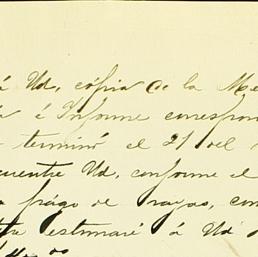 á Ud, cópia de la Me
á Informe correspon
terminó el 21 del
cuentre Ud, conforme el
pago de rayas, con
estimaré á Ud